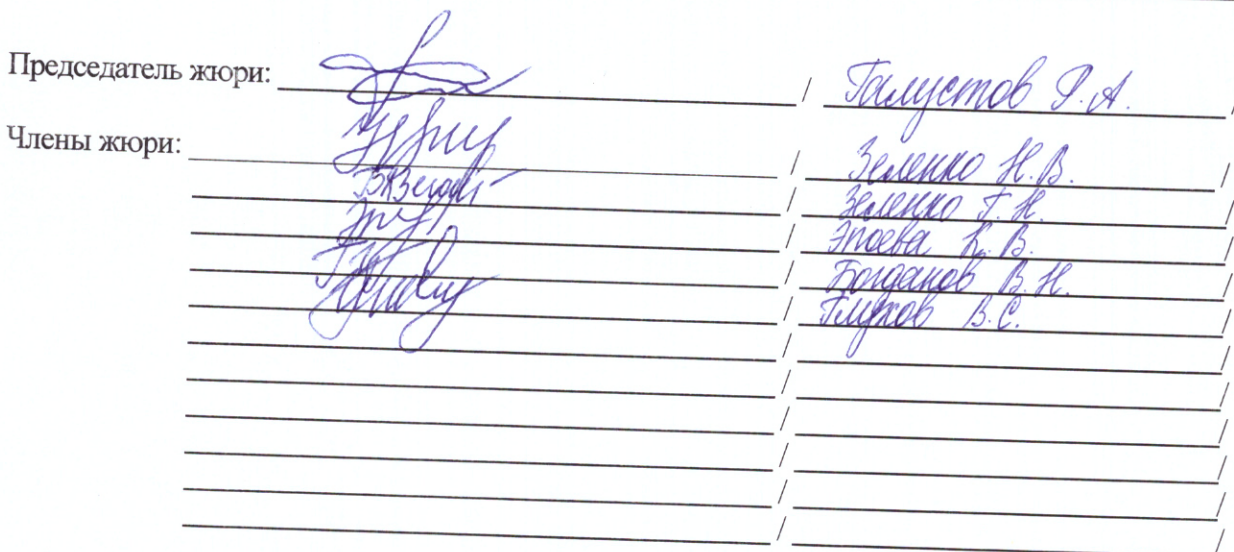 Председатель жюри: / Галустов Р.А. /
Члены жюри: / Зеленко Н.В. /
/ Зеленко Г.Н. /
/ Эпоева К.В. /
/ Богданов В.Н. /
/ Глухов В.С. /
/ /
/ /
/ /
/ /
/ /
/ /